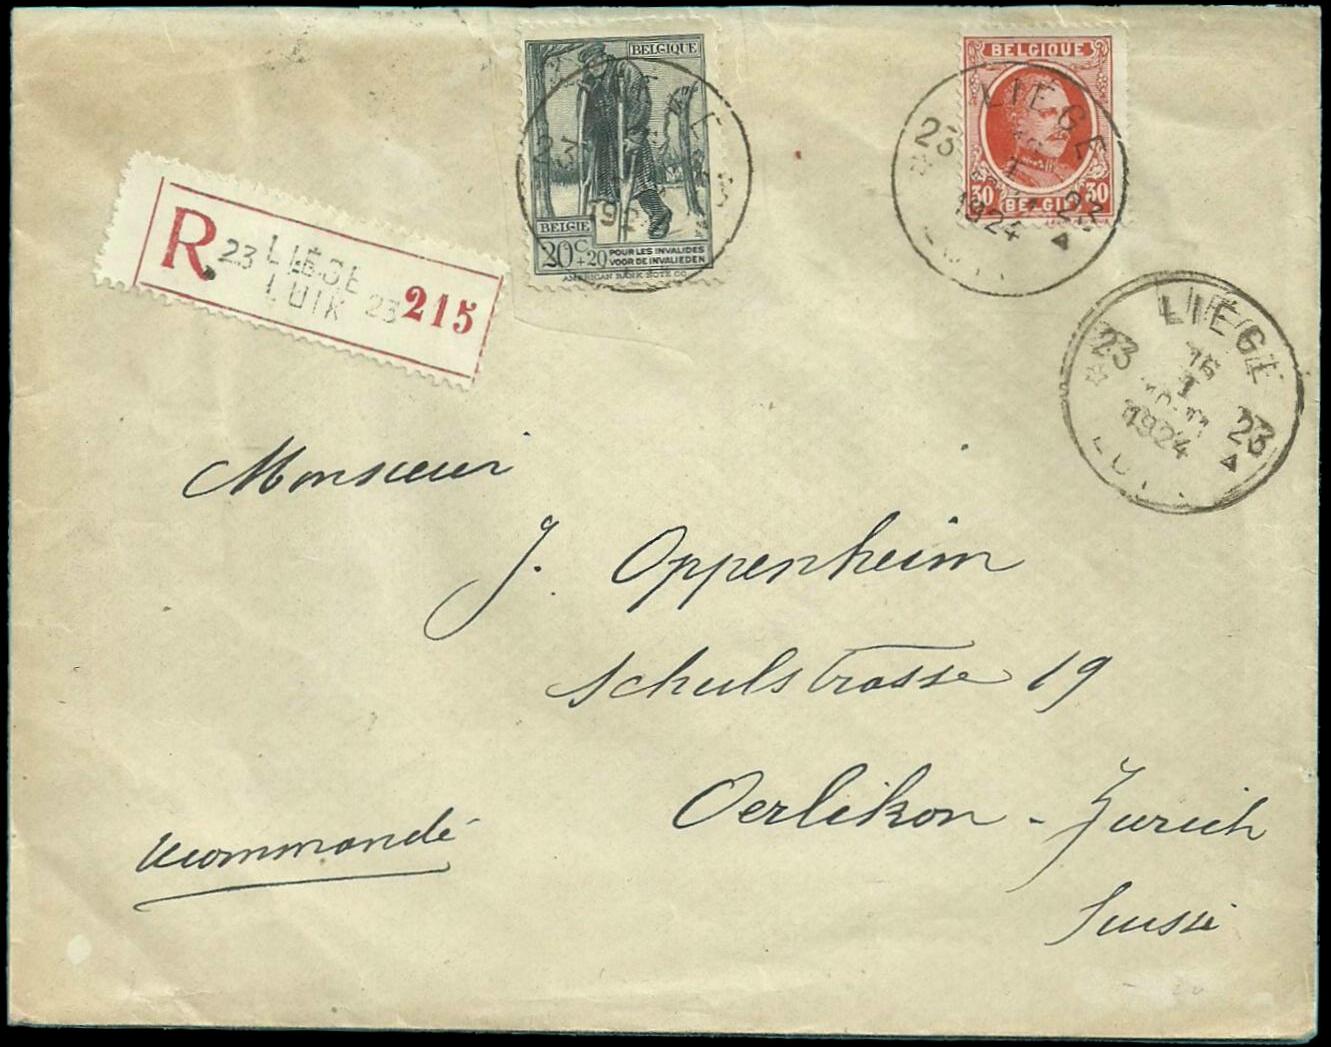 BELGIQUE
BELGIE
20C +20
POUR LES INVALIDES
VOOR DE INVALIEDEN
AMERICAN BANK NOTE CO.
BELGIQUE
30 BELGIË 30
LIEGE
23 23
1924
R 23 LIÉGE
LUIK 23 215
LIEGE
23 16 23
I
1924
LUIK
Monsieur
J. Oppenheim
Schulstrasse 19
Oerlikon - Zurich
Suisse
recommandé